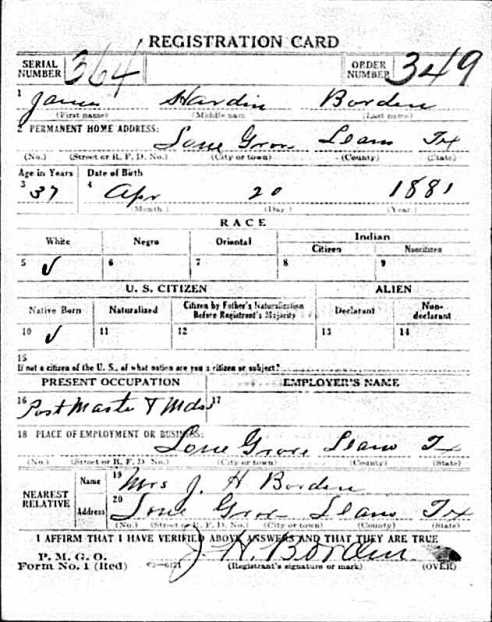 REGISTRATION CARD
SERIAL NUMBER 364 ORDER NUMBER 349
1 James Hardin Borden
(First name) (Middle name) (Last name)
2 PERMANENT HOME ADDRESS:
Lone Grove Llano Tx
(No.) (Street or R. F. D. No.) (City or town) (County) (State)
Age in Years Date of Birth
3 37 4 Apr 20 1881
(Month.) (Day.) (Year.)
RACE
White Negro Oriental Indian
Citizen Noncitizen
5 ✓ 6 7 8 9
U. S. CITIZEN ALIEN
Native Born Naturalized Citizen by Father's Naturalization Before Registrant's Majority Declarant Non-declarant
10 ✓ 11 12 13 14
15
If not a citizen of the U. S., of what nation are you a citizen or subject?
PRESENT OCCUPATION EMPLOYER'S NAME
16 Post Master & Mdse 17
18 PLACE OF EMPLOYMENT OR BUSINESS:
Lone Grove Llano Tx
(No.) (Street or R. F. D. No.) (City or town) (County) (State)
NEAREST RELATIVE Name 19 Mrs J. H Borden
Address 20 Lone Grove Llano Tx
(No.) (Street or R. F. D. No.) (City or town) (County) (State)
I AFFIRM THAT I HAVE VERIFIED ABOVE ANSWERS AND THAT THEY ARE TRUE
P. M. G. O.
Form No. 1 (Red) J H Borden
(Registrant's signature or mark) (OVER)